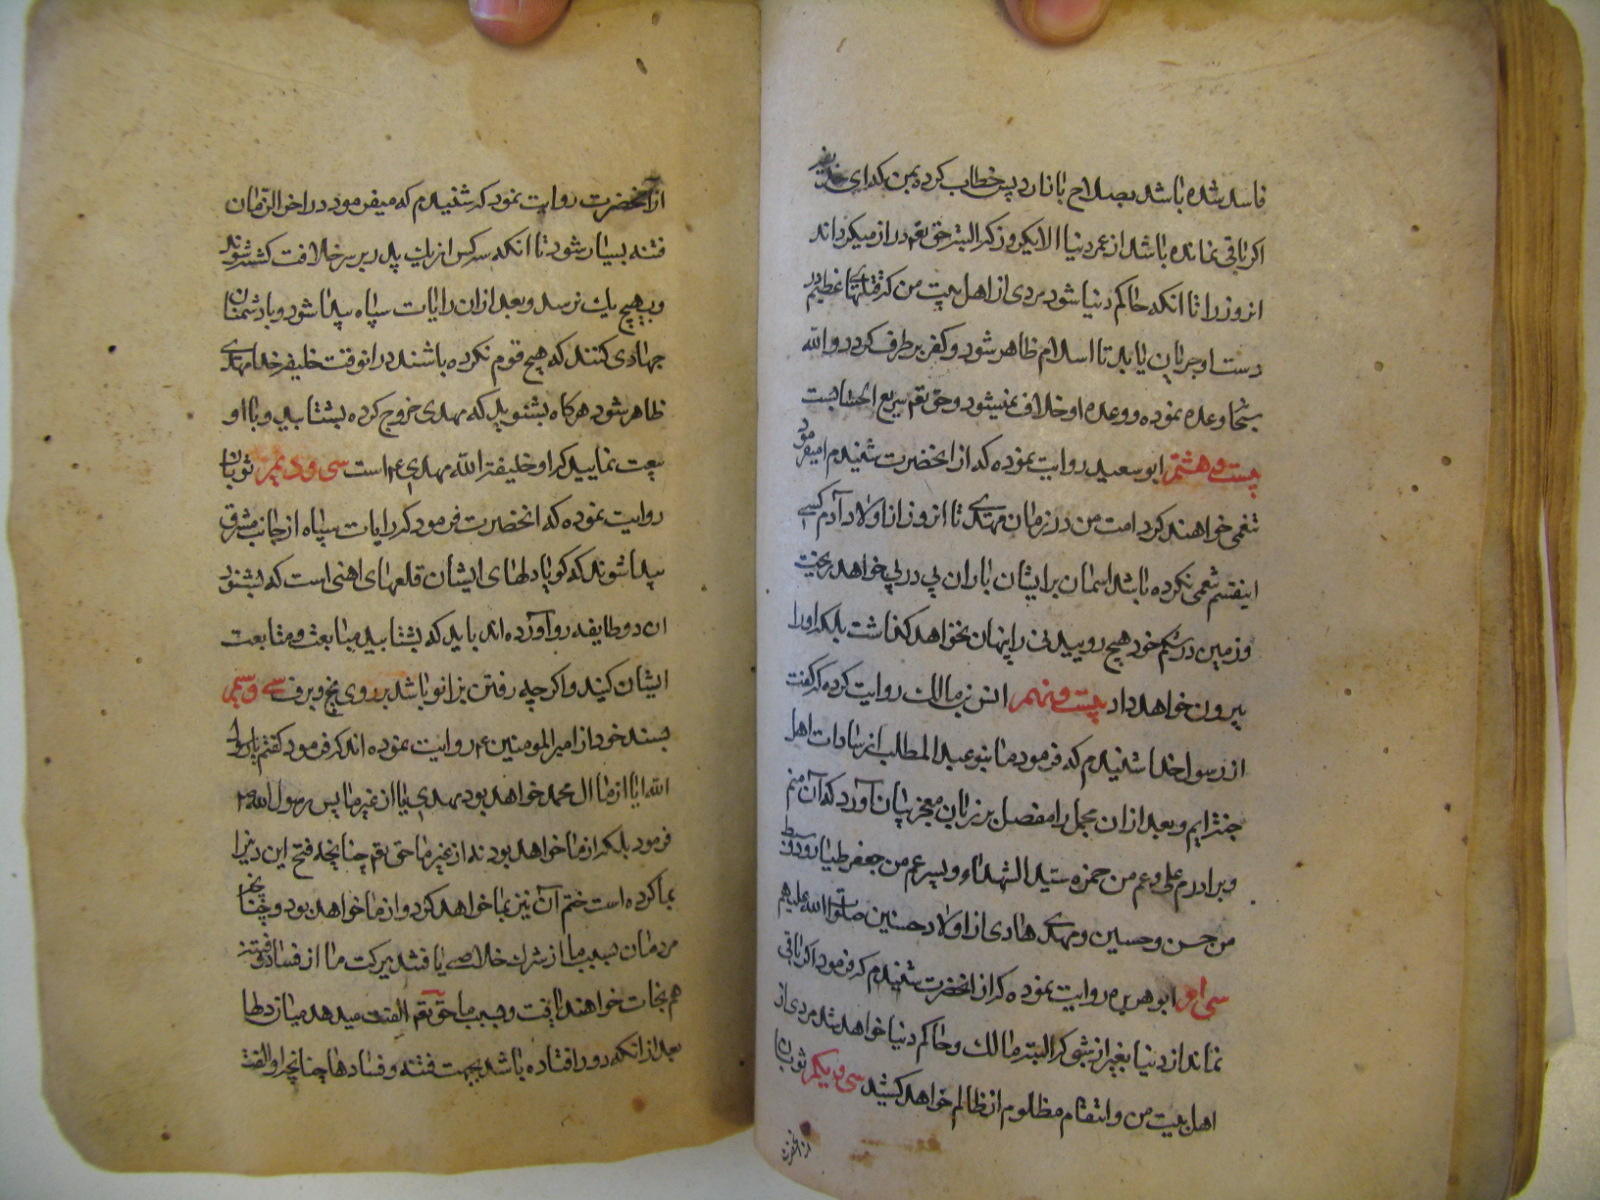 فاسد شده باشد بصلاح باز ارد پس خطاب کرده بمن که ای حذیفه
اکر باقی نمانده باشد از عمر دنیا الا یکروز که البته حق تعم دراز میکرداند
انروز را تا انکه حاکم دنیا شود مردی از اهل بیت من که فتحهای عظیم در
دست او جریان یابد تا اسلام ظاهر شود و کفر بر طرف کردد و الله
سبحا وعده نموده و وعده او خلاف نمیشود و حق تعم سریع الحسابست
بیست و هشتم ابو سعید روایت نموده که از انحضرت شنیدم میفرمود
تنعمی خواهند کرد امت من در زمان مهدی تا انروز از اولاد آدم کسی
اینقسم تنعمی نکرده باشد اسمان بر ایشان باران پی در پی خواهد ریخت
و زمین در شکم خود هیچ روییدنی را پنهان نخواهد کذاشت بلکه او را
بیرون خواهد داد بیست و نهم انس بن مالک روایت کرده که کفت
از رسول خدا شنیدم که فرمود ما بنو عبد المطلب از سادات اهل
جنت ایم و بعد از ان مجمل را مفصل بر زبان معجز بیان آورد که آن منم
و برادرم علی و عم من حمزه سید الشهداء و پسر عم من جعفر طیار و دو سبط
من حسن و حسین و مهدی هادی از اولاد حسنین صلوات الله علیهم
سی ام ابو هریره روایت نموده که از انحضرت شنیدم که فرمود اکر باقی
نماند از دنیا بغیر از شبی که البته مالک و حاکم دنیا خواهد شد مردی از
اهل بیت من و انتقام مظلوم از ظالم خواهد کشید سی و یکم ثوبان
از انحضرت
از انحضرت روایت نمود که شنیدم که میفرمود در اخر الزمان
فتنه بسیار شود تا انکه سه کس از یک پدر بر سر خلافت کشته شوند
و بهیچ یک نرسد و بعد از ان رایات سیاه پیدا شود و با دشمنان
جهادی کنند که هیچ قوم نکرده باشند در انوقت خلیفه خدا مهدی
ظاهر شود هرکاه بشنوید که مهدی خروج کرده بشتابید و با او
بیعت نمایید که او خلیفة الله مهدی ع است سی و دیم ثوبان
روایت نموده که انحضرت فرمود که رایات سیاه از جانب مشرق
پیدا شوند که کویا دلهای ایشان قلعهای اهنی است که بشنود
ان دو طایفه رو آورده اند باید که بشتابید مبایعت و متابعت
ایشان کنید و اکر چه رفتن بزانو باشد بر روی یخ و برف سی و سیم
بسند خود از امیر المومنین ع روایت نموده اند که فرمود کفتم یا رسول
الله ایا از ما ال محمد خواهد بود مهدی یا از غیر ما پس رسول الله ص
فرمود بلکه از ما خواهد بود نه از غیر ما حق تعم چنانچه فتح این دین را
بما کرده است ختم آن نیز بما خواهد کرد و از ما خواهد بود و چنانچه
مردمان بسبب ما از شرک خلاصی یافتند ببرکت ما از فساد و فتنه
هم نجات خواهند یافت و بسبب ما حق تعم الفت میدهد میان دلها
بعد از انکه دور افتاده باشد بجهت فتنه و فسادها چنانچه او الفت